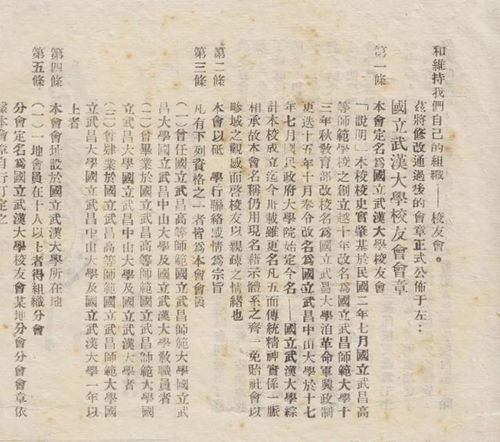 和維持我們自己的組織——校友會。
茲將修改通過後的會章正式公佈于左：
國立武漢大學校友會會章
第一條
本會定名爲國立武漢大學校友會
「說明」本校校史官肇基於民國二年七月國立武昌高
等師範學校之創立越十年改名爲國立武昌師範大學十
三年秋教育部改校名爲國立武昌大學泊革命軍興政制
更迭十五年十月奉令改名爲國立武昌中山大學於十七
年七月國民政府大學院始定今名——國立武漢大學綜
計本校成立迄今卅載雖更名凡五而傳統精神實係一脈
相承故本會名稱仍用現名藉示體系之齊一免貽社會以
畛域之觀感而啓校友以親疎之情緒也
第二條
本會以砥 學行聯絡感情爲宗旨
第三條
凡有下列資格之一者皆爲本會會員
(一)曾任國立武昌高等師範國立武昌師範大學國立武
昌大學國立武昌中山大學及國立武漢大學教職員者
(二)曾畢業於國立武昌高等師範國立武昌師範大學國
立武昌大學國立武昌中山大學及國立武漢大學者
(三)曾肄業於國立武昌高等師範國立武昌師範大學國
立武昌大學國立武昌中山大學及國立武漢大學一年以
上者
第四條
本會會址設於國立武漢大學所在地
第五條
(一)地會員在十人以上者得組織分會
分會定名爲國立武漢大學校友會某地分會分會會章依
據本會章自行訂定之